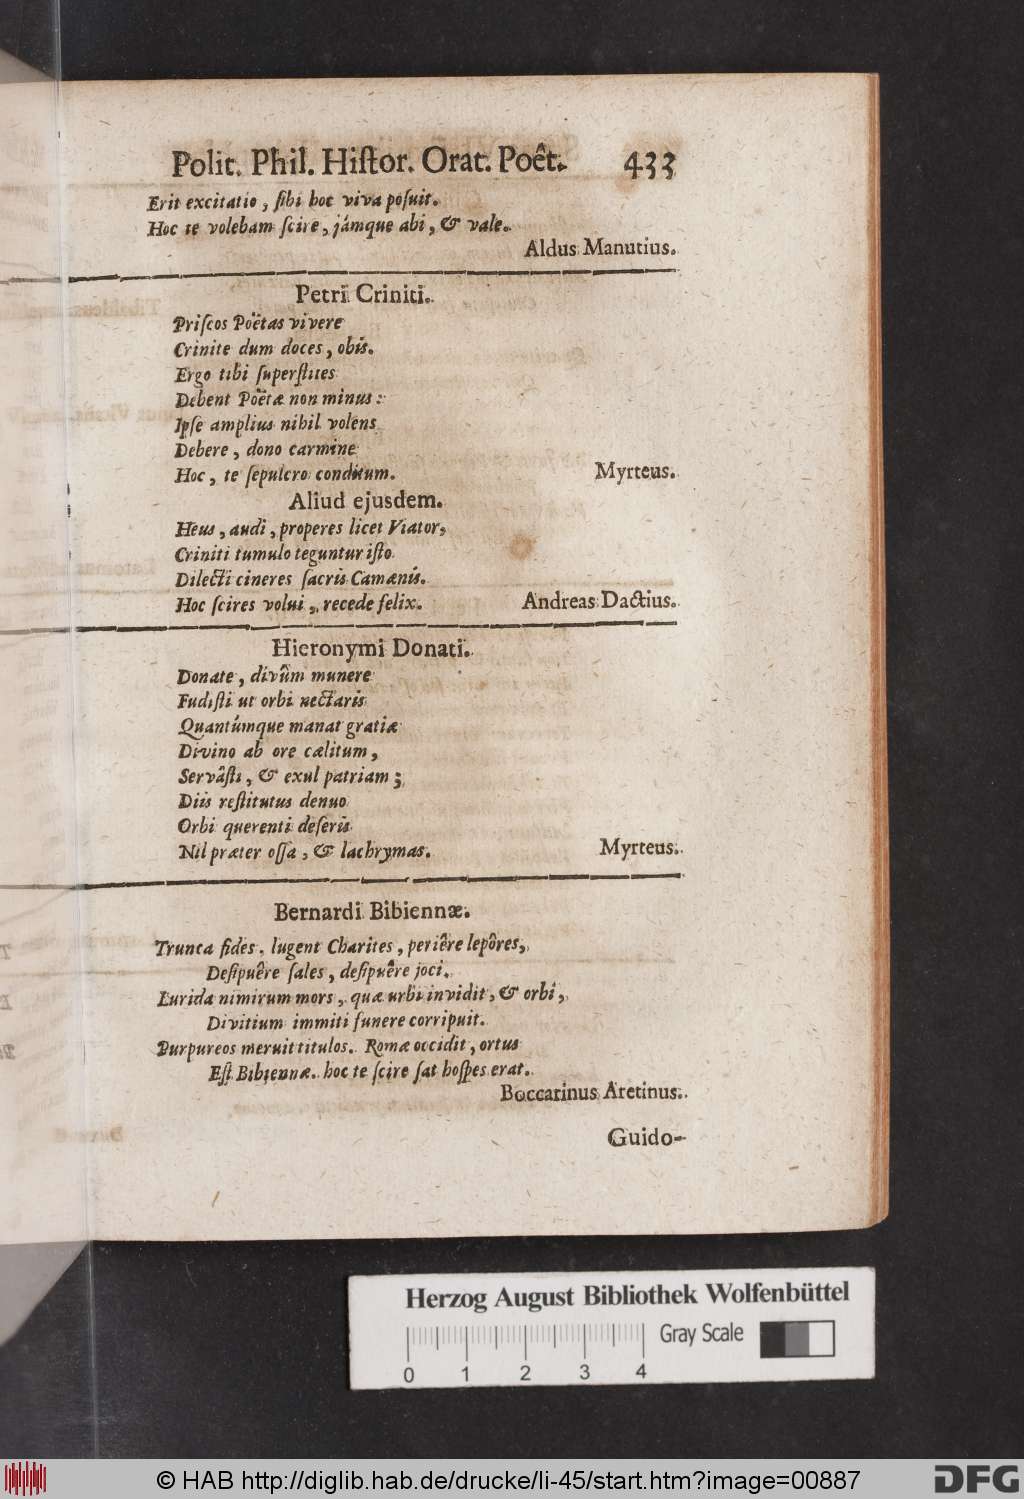 Polit. Phil. Histor. Orat. Poêt. 433
Erit excitatio, sibi hoc viva posuit.
Hoc te volebam scire, jámque abi, & vale.
Aldus Manutius.
Petri Criniti.
Priscos Poëtas vivere
Crinite dum doces, obis.
Ergo tibi superstites
Debent Poëtæ non minus:
Ipse amplius nihil volens
Debere, dono carmine
Hoc, te sepulcro conditum. Myrteus.
Aliud ejusdem.
Heus, audi, properes licet Viator,
Criniti tumulo teguntur isto
Dilecti cineres sacris Camænis.
Hoc scires volui, recede felix. Andreas Dactius.
Hieronymi Donati.
Donate, divûm munere
Fudisti ut orbi nectaris
Quantúmque manat gratiæ
Divino ab ore cælitum,
Servâsti, & exul patriam;
Diis restitutus denuo
Orbi querenti deseris
Nil præter ossa, & lachrymas. Myrteus.
Bernardi Bibiennæ.
Trunca fides. lugent Charites, periêre lepôres,
Desipuêre sales, desipuêre joci.
Lurida nimirum mors, quæ urbi invidit, & orbi,
Divitium immiti funere corripuit.
Purpureos meruit titulos. Romæ occidit, ortus
Est Bibiennæ. hoc te scire sat hospes erat.
Boccarinus Aretinus.
Guido-
Herzog August Bibliothek Wolfenbüttel
Gray Scale
0 1 2 3 4
© HAB http://diglib.hab.de/drucke/li-45/start.htm?image=00887
DFG